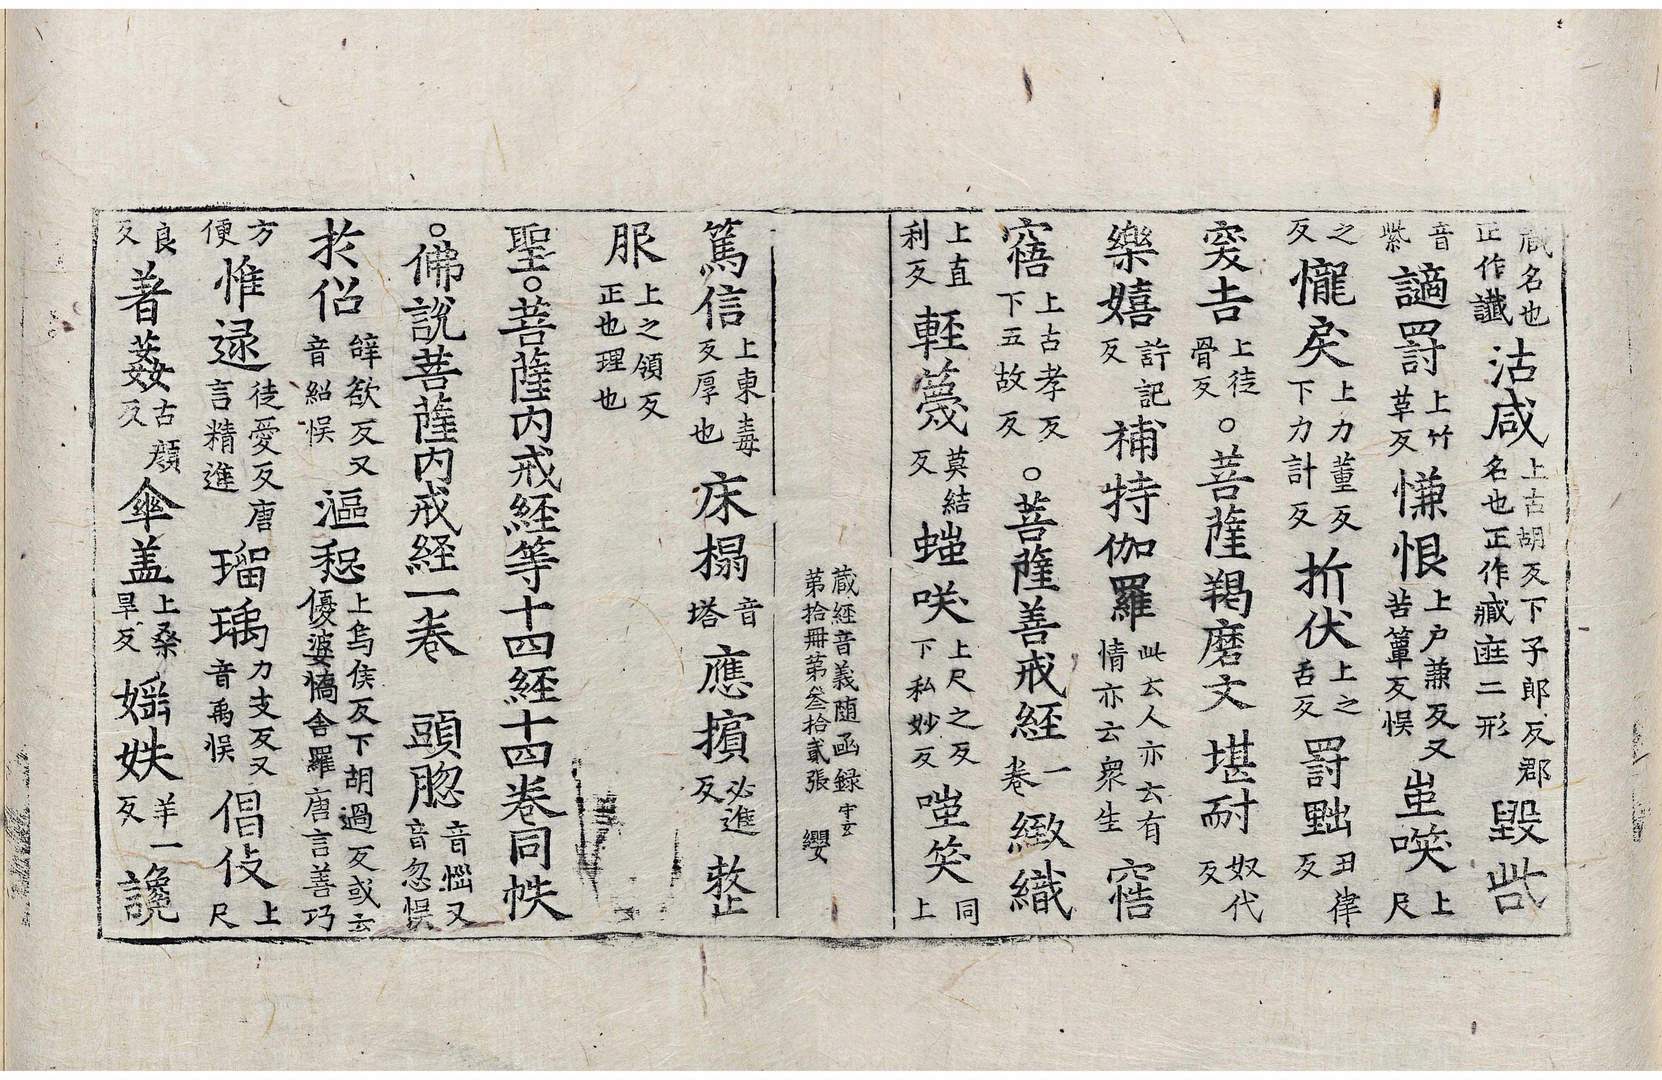 咸名也正作讖沽咸上古胡反下子郎反郡名也正作臧𨓍二形毀呰
音紫讁罸上竹革反慊恨上户兼反又苦簟反悮蚩唉上尺
之反憹戾上力董反下力計反折伏上之舌反罸黜丑律反
突吉上徒骨反。菩薩羯磨文堪耐奴代反
樂嬉許記反補特伽羅此云人亦云有情亦云衆生窖
𥧌上古孝反下五故反。菩薩善戒經一卷緻織
上直利反輕蔑莫結反蚩咲上尺之反下私妙反嗤笑同上
藏經音義随函録
第拾冊第叁拾貳張 纓
篤信上東毒反厚也床榻音塔應擯必進反整
服上之領反正也理也
聖。菩薩内戒経等十四経十四卷同帙
。佛說菩薩内戒経一卷 頭𦛁音惱又音忽悮
扵俗辝欲反又音紹悮漚惒上烏侯反下胡過反或云優婆憍舍羅唐言善巧
方便惟逯徒愛反唐言精進瑠瑀力支反又音禹悮倡伎上尺
良反著姦古顔反傘盖上桑旱反婬妷羊一反讒